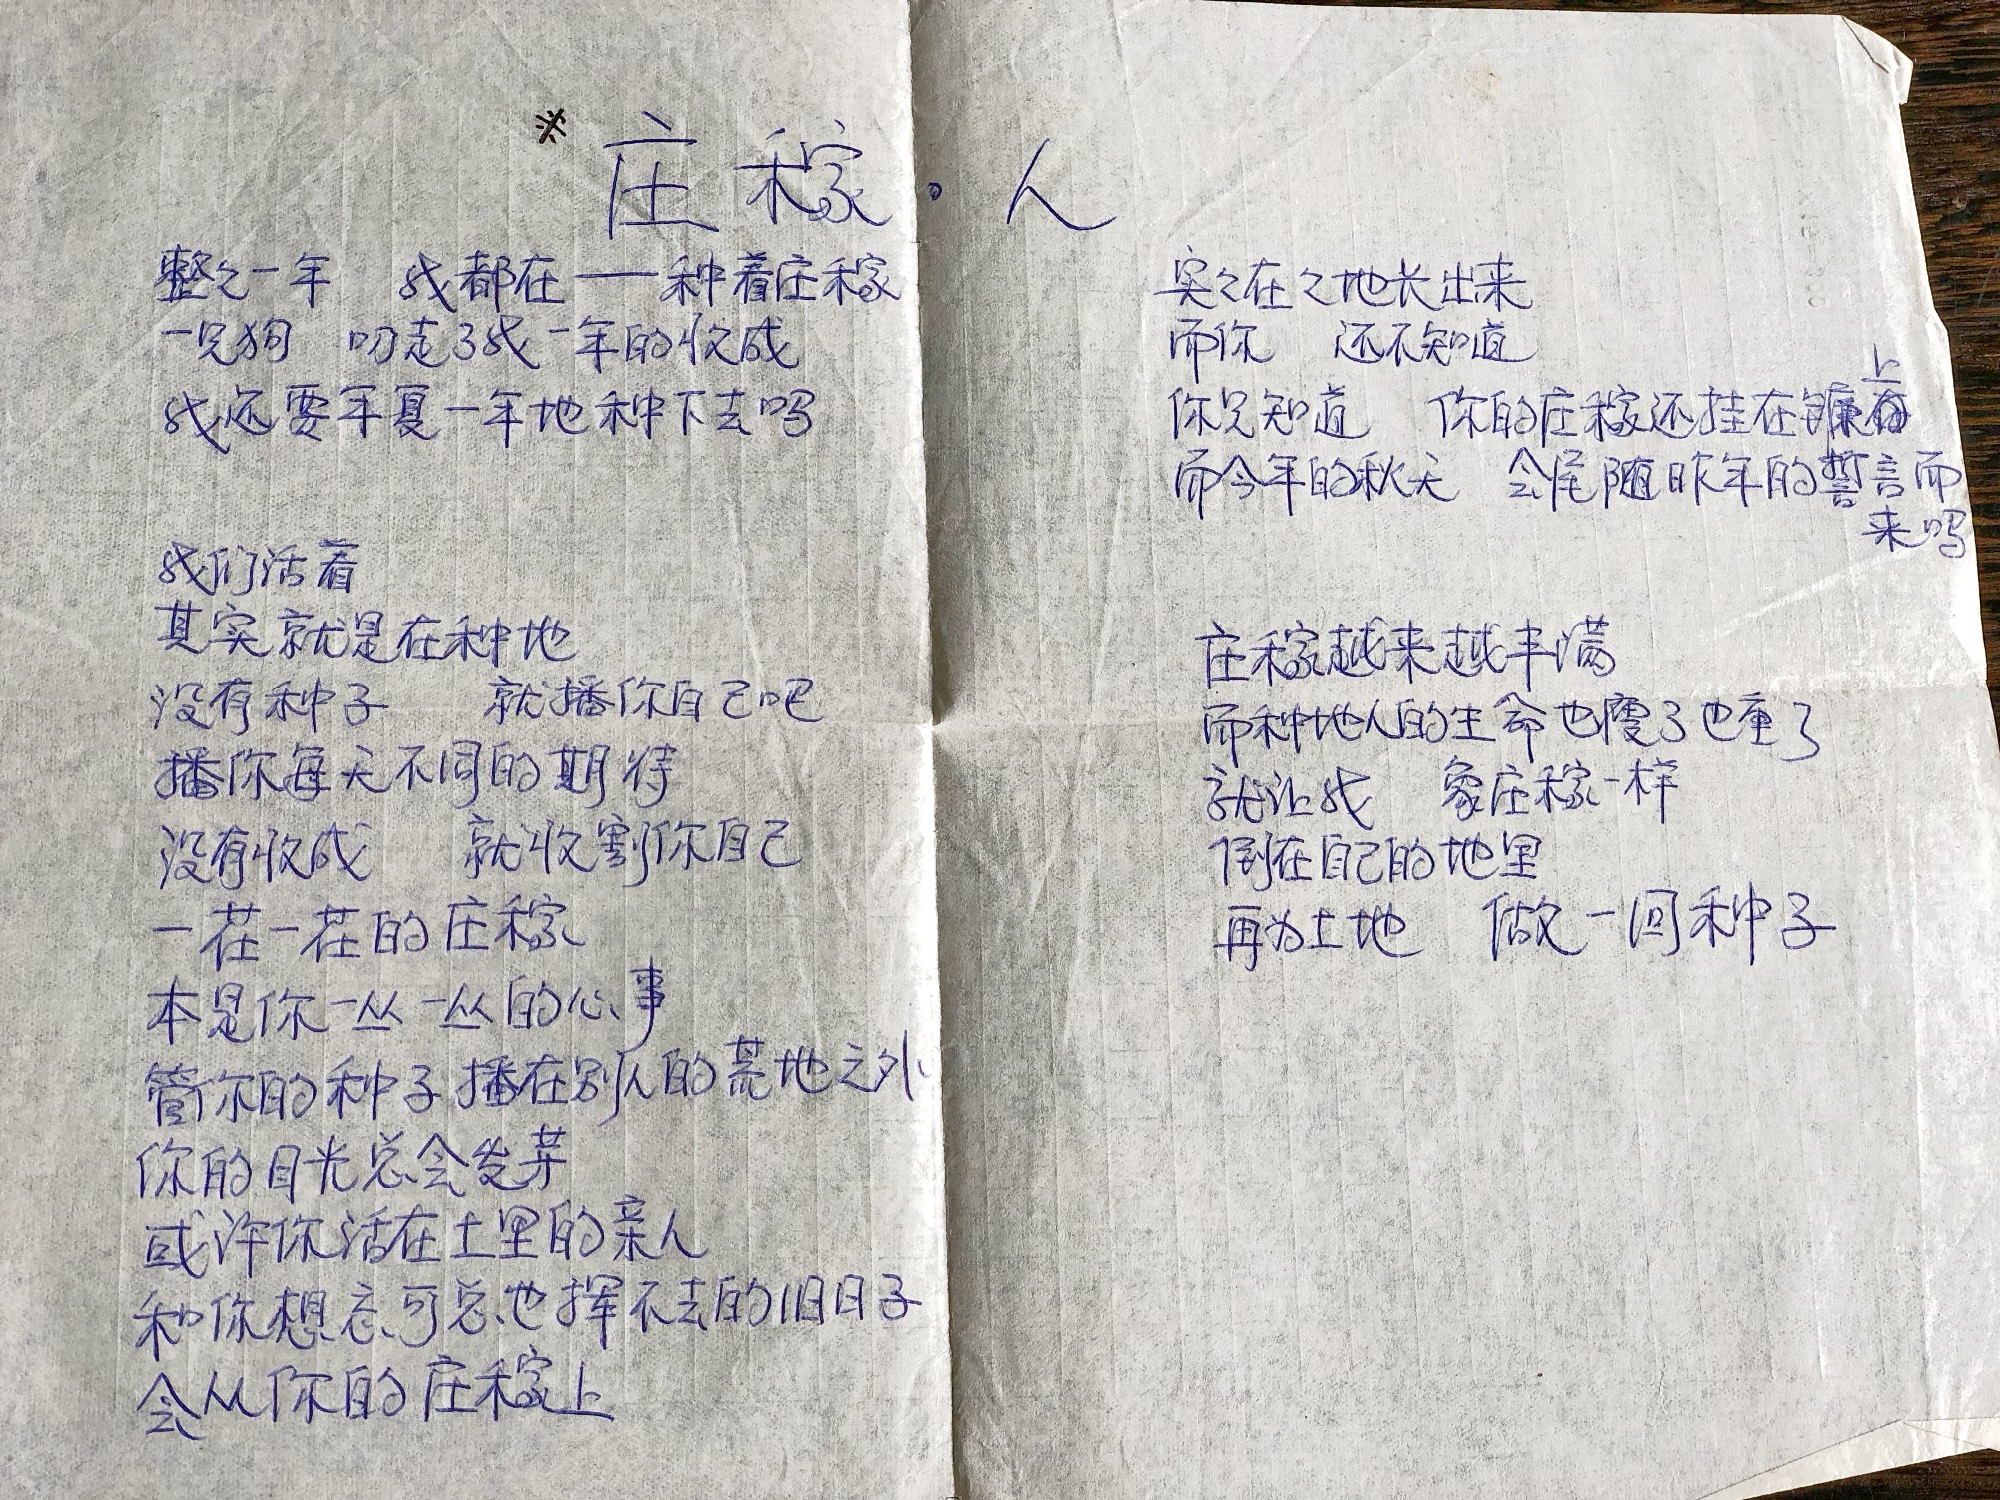 ※ 庄稼·人
整々一年 我都在——种着庄稼
一只狗 叨走了我一年的收成
我还要年复一年地种下去吗
我们活着
其实就是在种地
没有种子 就播你自己吧
播你每天不同的期待
没有收成 就收割你自己
一茬一茬的庄稼
本是你一丛一丛的心事
管你的种子播在别人的荒地之外
你的目光总会发芽
或许你活在土里的亲人
和你想忘可总也挥不去的旧日子
会从你的庄稼上
实々在々地长出来
而你 还不知道
你只知道 你的庄稼还挂在镰上
而今年的秋天 会尾随昨年的誓言而
来吗
庄稼越来越丰满
而种地人的生命也瘦了也重了
就让我 象庄稼一样
倒在自己的地里
再为土地 做一回种子